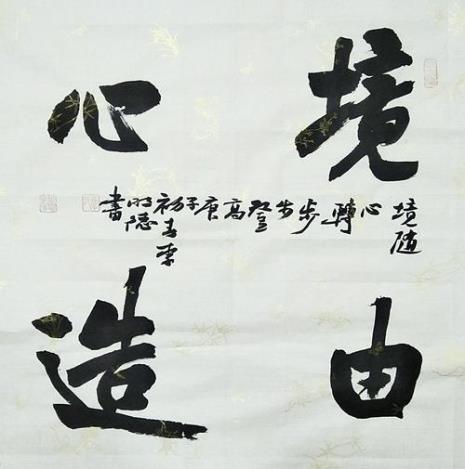 境由
心造
境隨心轉步步登高庚子初春李書